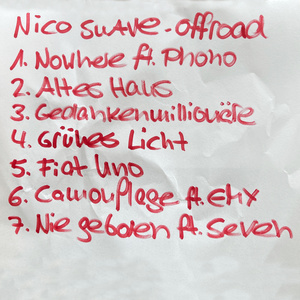 Nico Suave - Offroad
1. Nowhere ft. Phono
2. Altes Haus
3. Gedankenmillionäre
4. Grünes Licht
5. Fiat Uno
6. Camouflage ft. Ehx
7. Nie geboren ft. Seven